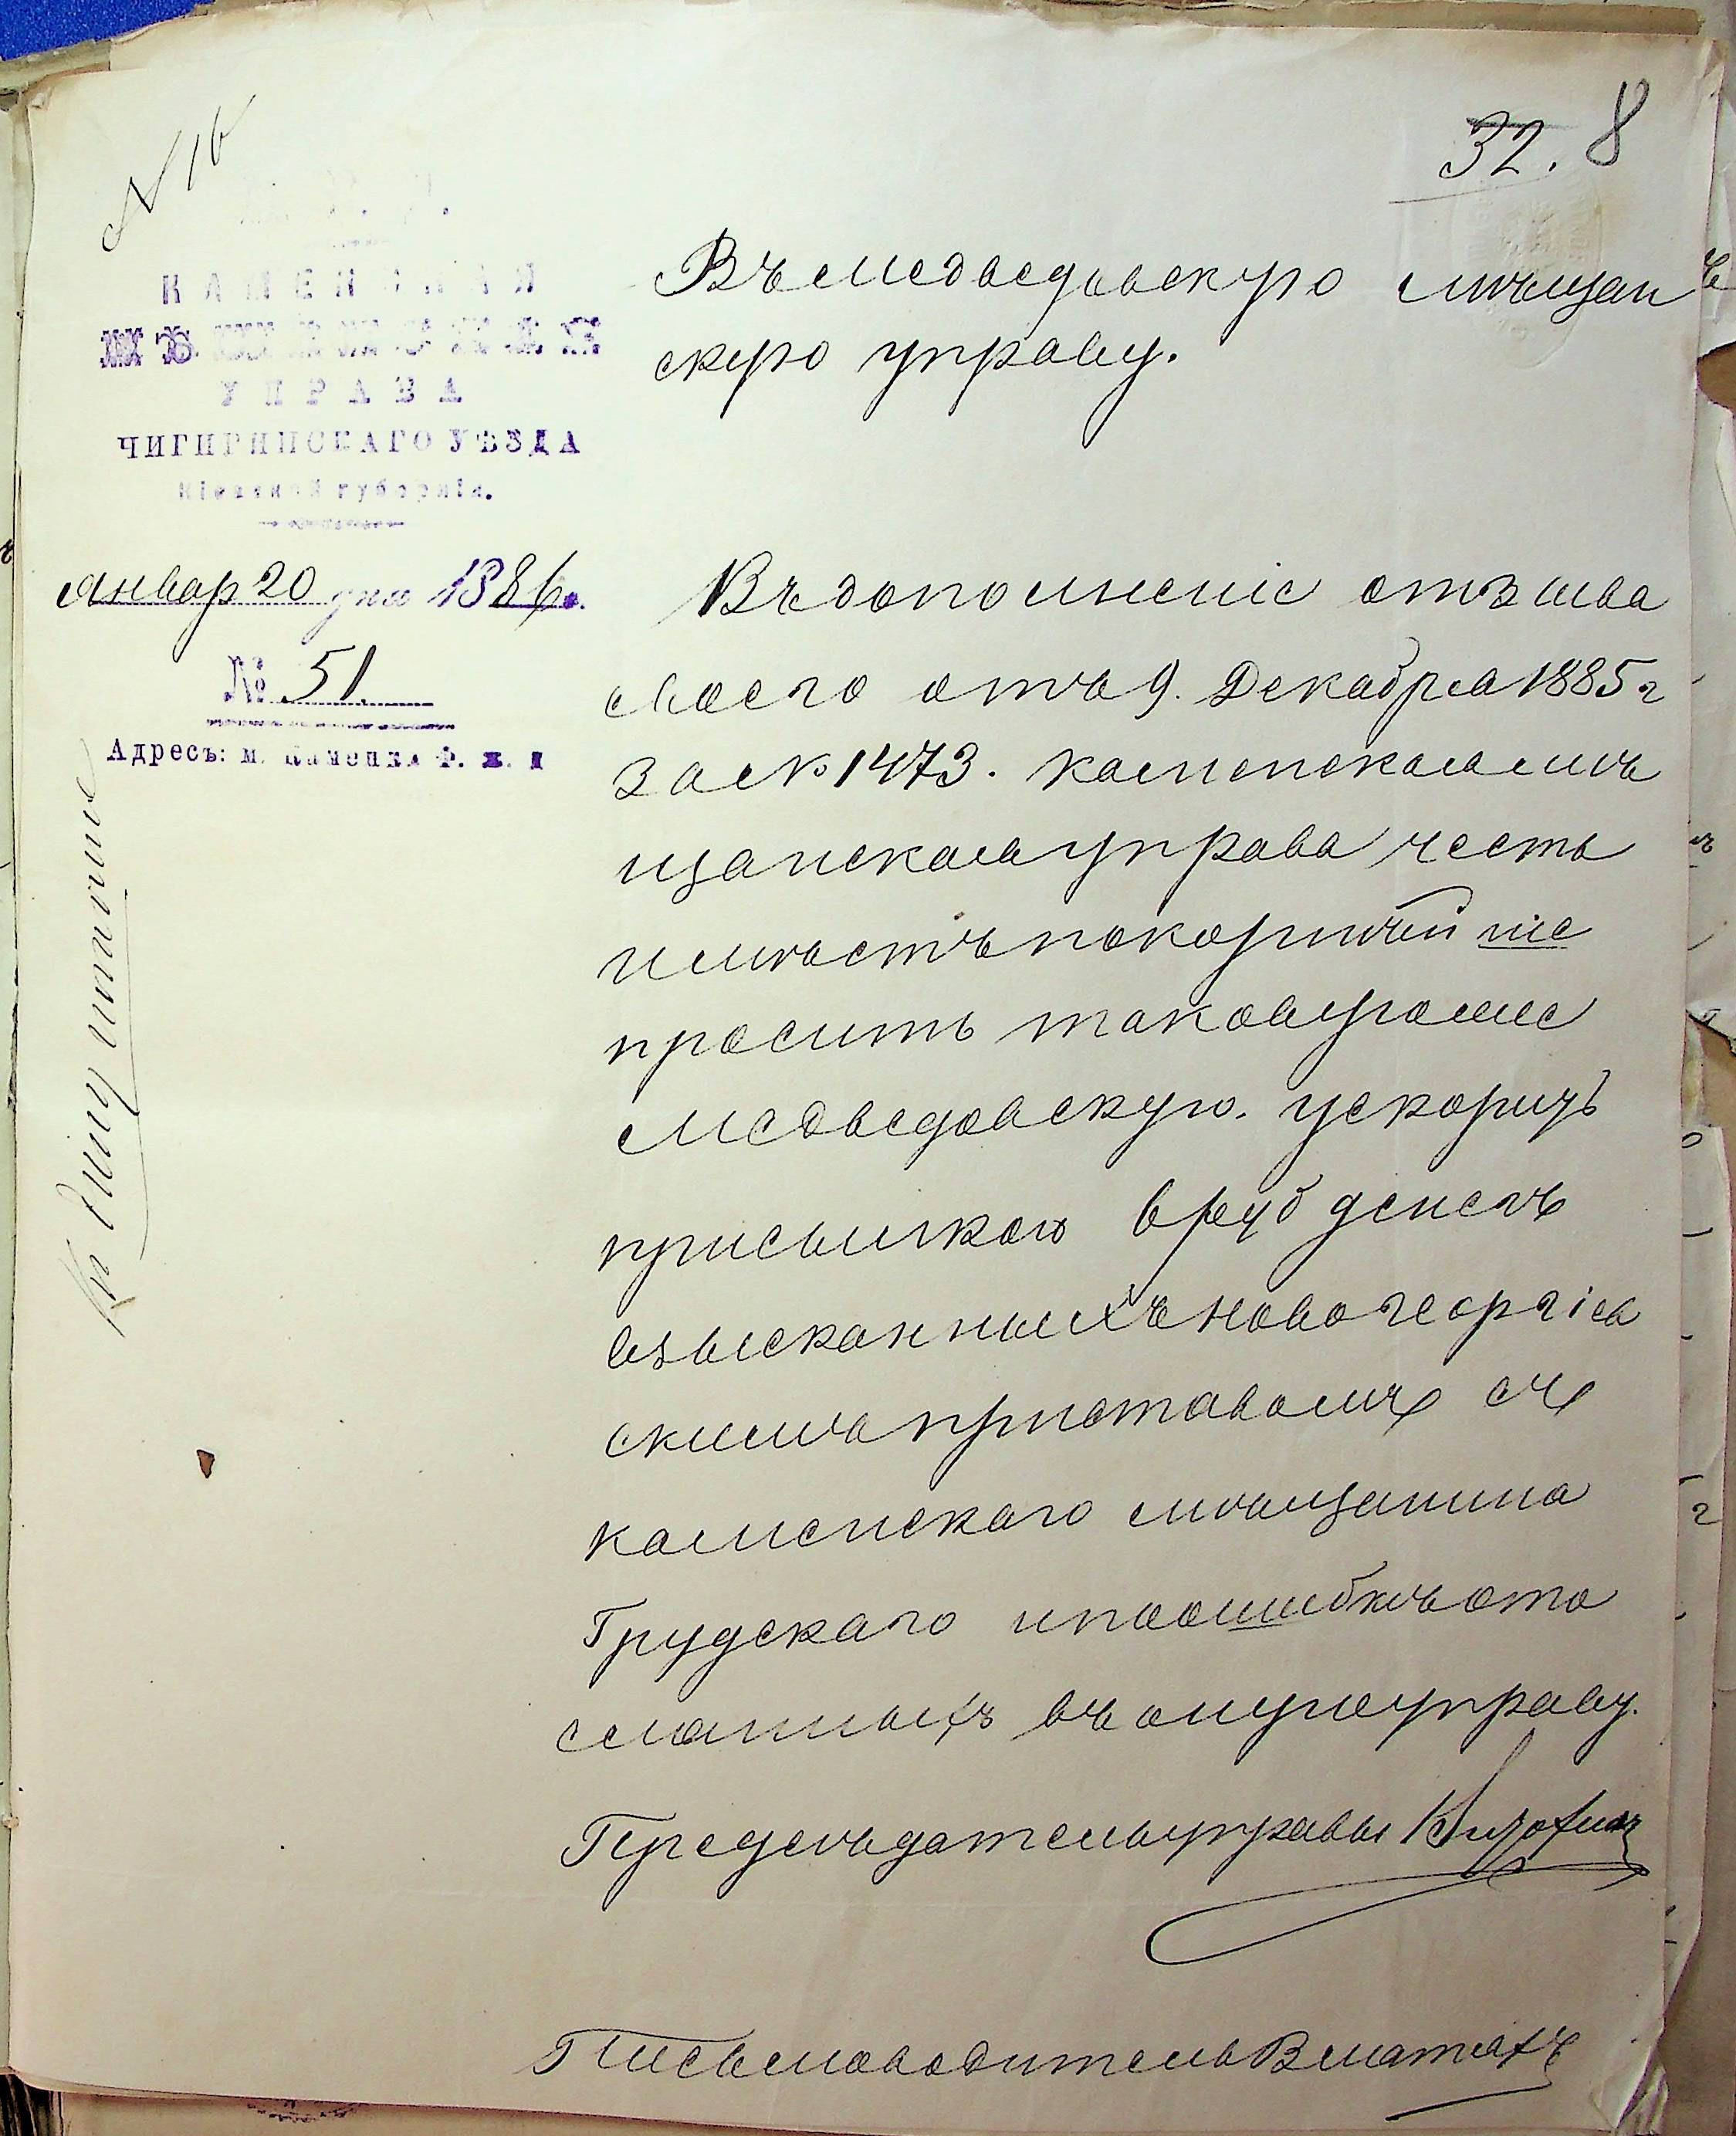 N 16
32. 8
КАМЕНСКАЯ
МѢЩАНСКАЯ
УПРАВА
ЧИГИРИНСКАГО УѢЗДА
Кіевской губерніи.
январ 20 дня 1886 г.
№ 51
Адресъ: м. Каменка Ф. ж. д
Въ Медведовскую мѣщан
скую управу.
Въ дополненіе отзыва
своего отъ 9. Декабря 1885 г
за № 1473. Каменская мѣ
щанская управа честь
имѣетъ покорнѣйше
просить таковую же
Медведовскую. ускорить
присылкою 6 руб денегъ
взысканныхъ новогеоргіев
скимъ приставомъ съ
каменскаго мѣщанина
Грудскаго и по ошибкѣ ото
сланныхъ въ оную управу.
Предсѣдатель управы
Письмоводитель